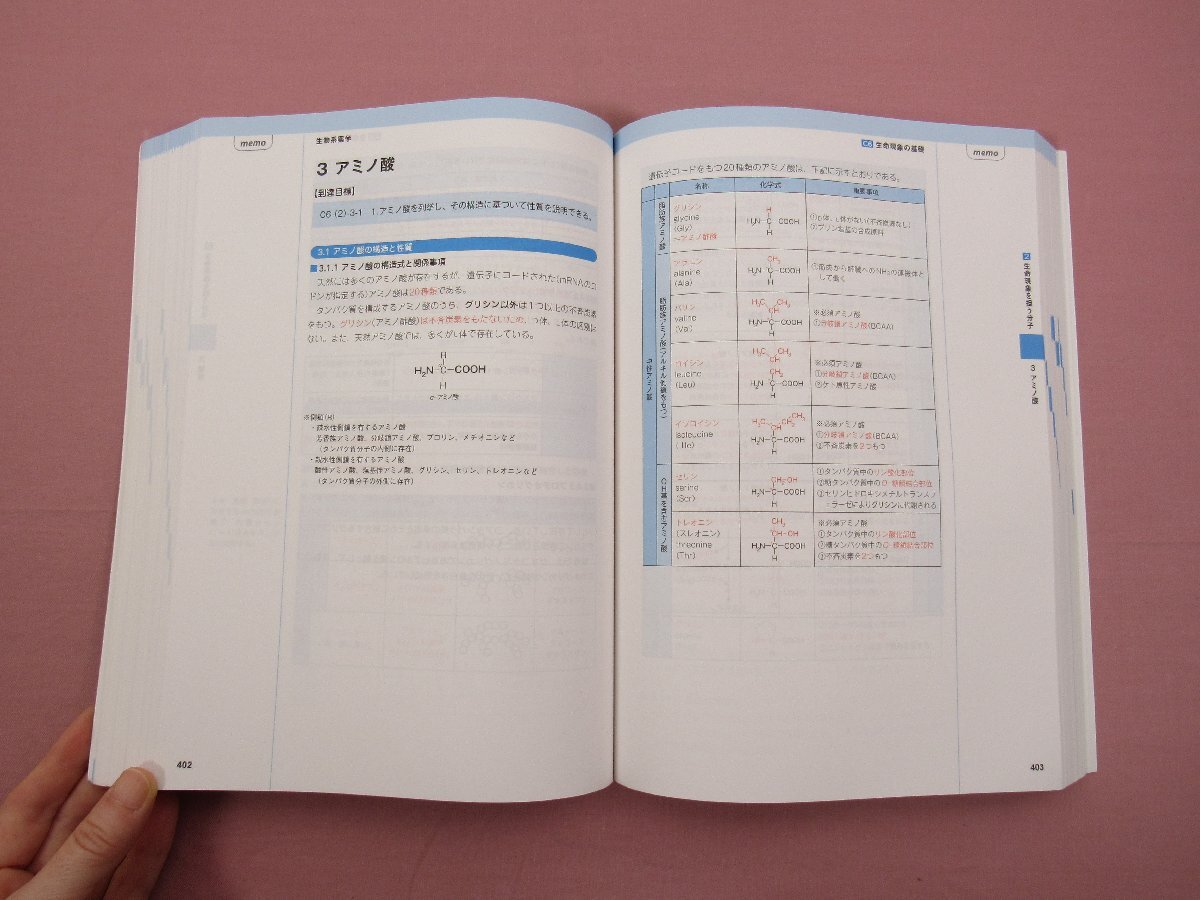 memo
生物系薬学
3 アミノ酸
【到達目標】
C6 (2)-3-1 1.アミノ酸を列挙し、その構造に基づいて性質を説明できる。
3.1 アミノ酸の構造と性質
■3.1.1 アミノ酸の構造式と関係事項
天然には多くのアミノ酸が存在するが、遺伝子にコードされた(mRNAのコ
ドンが指定する)アミノ酸は20種類である。
タンパク質を構成するアミノ酸のうち、グリシン以外は1つ以上の不斉炭素
をもつ。グリシン(アミノ酢酸)は不斉炭素をもたないため、D体、L体の区別は
ない。また、天然アミノ酸では、多くがL体で存在している。
H
H₂N-C-COOH
H
α-アミノ酸
※側鎖(R)
・疎水性側鎖を有するアミノ酸
芳香族アミノ酸、分岐鎖アミノ酸、プロリン、メチオニンなど
(タンパク質分子の内側に存在)
・親水性側鎖を有するアミノ酸
酸性アミノ酸、塩基性アミノ酸、グリシン、セリン、トレオニンなど
(タンパク質分子の外側に存在)
402
C6 生命現象の基礎
memo
遺伝子コードをもつ20種類のアミノ酸は、下記に示すとおりである。
名称 化学式 重要事項
中性アミノ酸
脂肪族アミノ酸
グリシン
glycine
(Gly)
=アミノ酢酸
H
H₂N-C-COOH
H
①D体、L体がない(不斉炭素なし)
②プリン塩基の合成原料
脂肪族アミノ酸(アルキル側鎖をもつ)
アラニン
alanine
(Ala)
CH₃
H₂N-C-COOH
H
①筋肉から肝臓へのNH₃の運搬体と
して働く
バリン
valine
(Val)
H₃C CH₃
CH
H₂N-C-COOH
H
※必須アミノ酸
①分岐鎖アミノ酸(BCAA)
ロイシン
leucine
(Leu)
H₃C CH₃
CH
CH₂
H₂N-C-COOH
H
※必須アミノ酸
①分岐鎖アミノ酸(BCAA)
②ケト原性アミノ酸
イソロイシン
isoleucine
(Ile)
H₃C CH₂ CH₃
CH
H₂N-C-COOH
H
※必須アミノ酸
①分岐鎖アミノ酸(BCAA)
②不斉炭素を2つもつ
OH基を含むアミノ酸
セリン
serine
(Ser)
CH₂-OH
H₂N-C-COOH
H
①タンパク質中のリン酸化部位
②糖タンパク質中のO-糖鎖結合部位
③セリンヒドロキシメチルトランスフ
ェラーゼによりグリシンに代謝される
トレオニン
(スレオニン)
threonine
(Thr)
CH₃
CH-OH
H₂N-C-COOH
H
※必須アミノ酸
①タンパク質中のリン酸化部位
②糖タンパク質中のO-糖鎖結合部位
③不斉炭素を2つもつ
2 生命現象を担う分子
3 アミノ酸
403